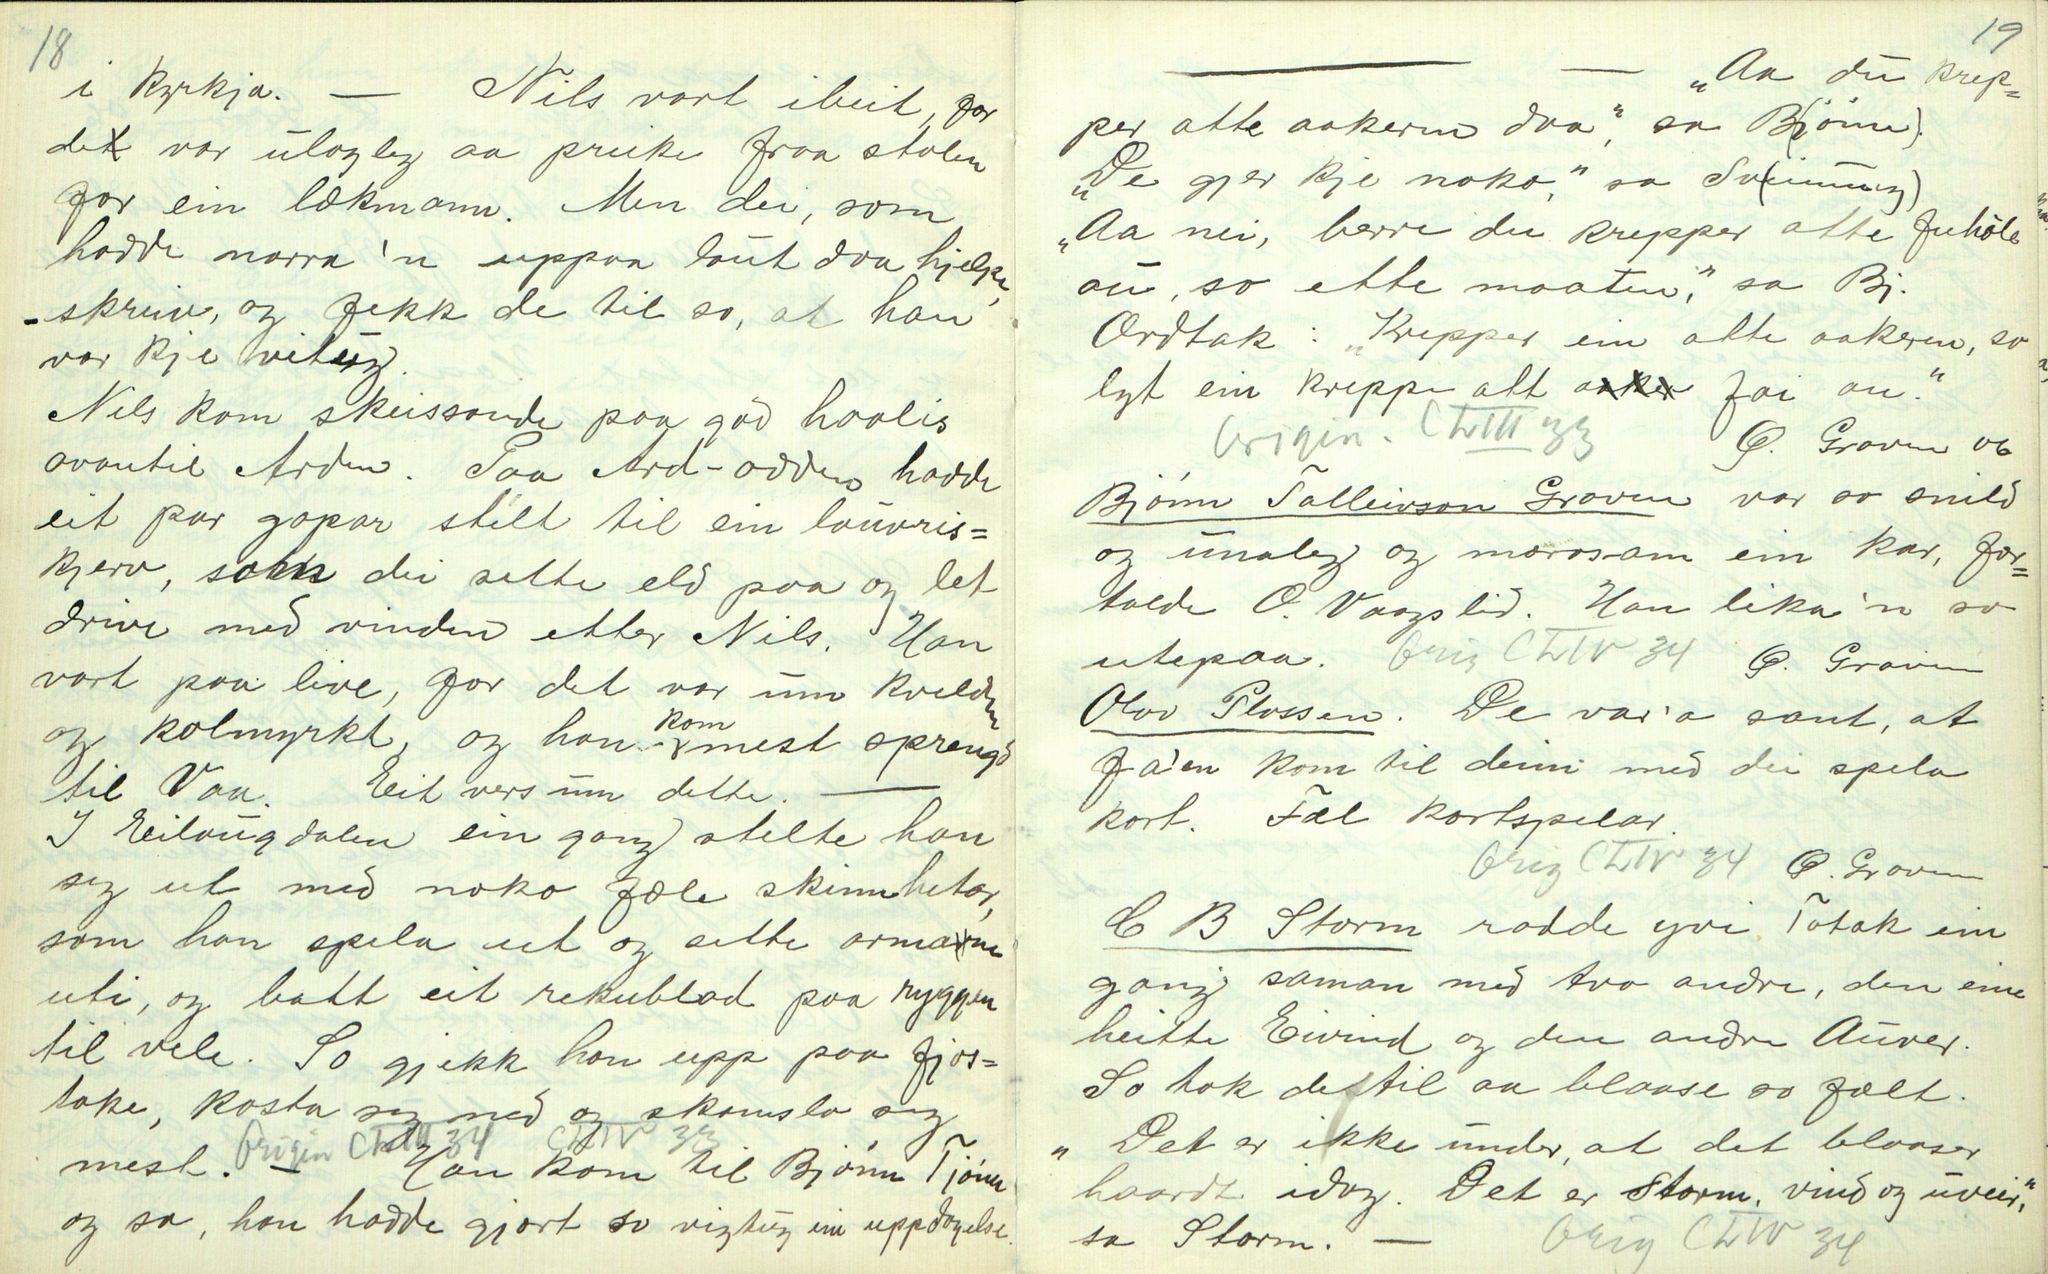 18
i kyrkja. — Nils vart ibeit, for
det var ulogleg aa preike fraa stolen
for ein lekmann. Men dei, som
hadde narra 'n uppaa laut daa hjelpe,
-skreiv, og fekk de til so, at han
var kje vitug.
Nils kom skeissande paa god haalis
avantil Arden. Paa Ard-odden hadde
eit par gapar stelt til ein lauvris=
kjerv, som dei sette eld paa og let
drive med vinden etter Nils. Han
vart paa live, for det var um kvelden
og kolmyrkt, og han kom mest sprengd
til Vaa. Eit vers um dette. —
I Eilaugdalen ein gang stelte han
seg ut med noko fæle skinnhetar,
som han spela ut og sette armarne
uti, og batt eit rekublad paa ryggen
til vele. So gjekk han upp paa fjos=
take, kasta seg ned og skamslo seg
mest. — Han kom til Bjønn Tjønn
Origin CLIII 34 CLIV 33
og sa, han hadde gjort so vigtug ein uppdagelse.
19
— — "Aa du krep=
per atte aakeren daa", sa Bj(ønn).
"De gjer kje noko," sa Sv(einung)
"Aa nei, berre du krepper atte fuhole
au, so ette maaten," sa Bj.
Ordtak: "Krepper ein atte aakeren, so
lyt ein kreppe att fai au."
Origin. CLIII 33 O. Graven og
Bjønn Talleivson Graven var so snild
og unaleg og morosam ein kar, for=
talde O. Vaagslid. Han lika 'n so
utepaa. Orig CLIV 34 O. Graven
Olav Plassen. De var'a sant, at
fa'en kom til deim med dei spela
kort. Fæl kortspelar.
Orig CLIV 34 O. Graven
C B Storm rodde yvi Totak ein
gang saman med tvo andre, den eine
heitte Eivind og den andre Auver.
So tok de til aa blaase so fælt.
"Det er ikke under, at det blaaser
haardt idag. Det er Storm, vind og uveir,"
sa Storm. — Orig CLIV 34